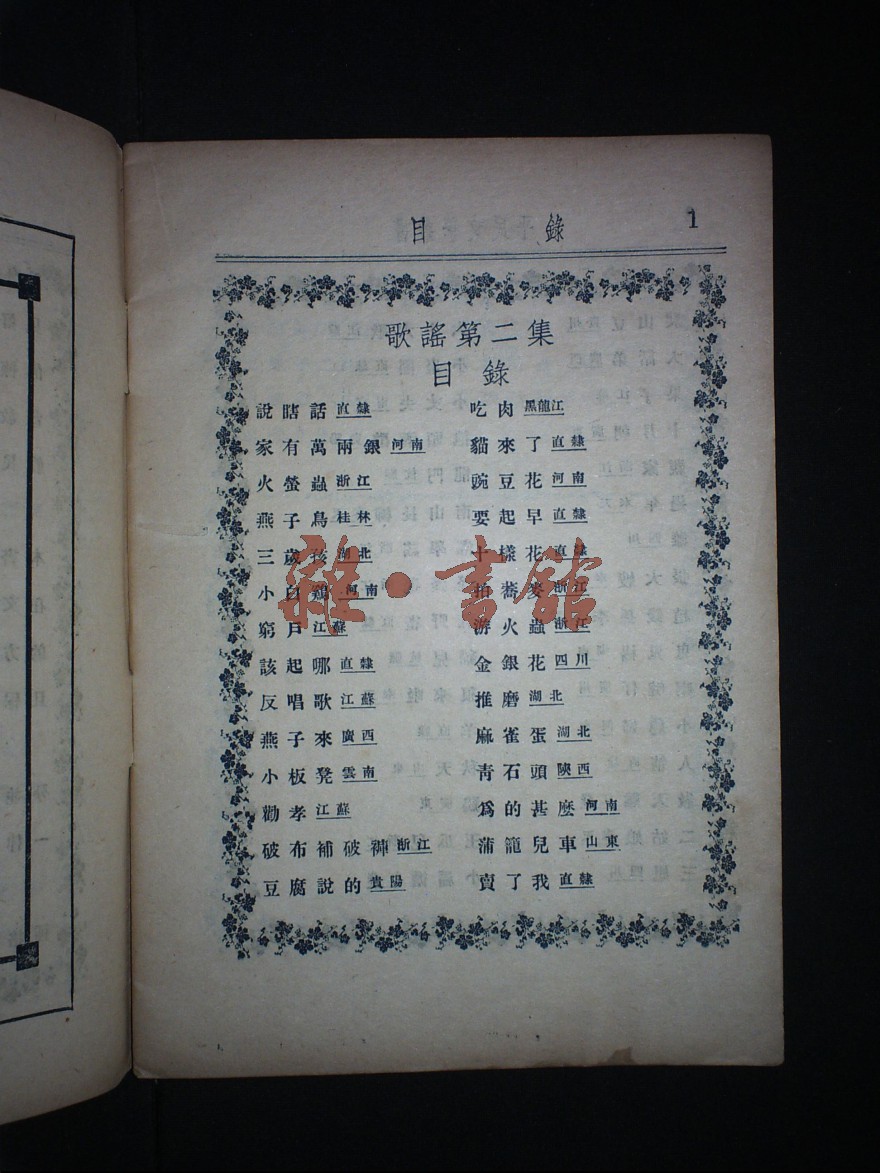 目錄 1
歌謠第二集
目錄
說瞎話 直隸
家有萬兩銀 河南
火螢蟲 浙江
燕子鳥 桂林
三歲孩 湖北
小白鷄 河南
窮月 江蘇
該起哪 直隸
反唱歌 江蘇
燕子來 廣西
小板凳 雲南
勸孝 江蘇
破布補破褲 浙江
豆腐說的 貴陽
吃肉 黑龍江
貓來了 直隸
豌豆花 河南
要起早 直隸
十樣花 直隸
拍蕎麥 浙江
游火蟲 浙江
金銀花 四川
推磨 湖北
麻雀蛋 湖北
青石頭 陝西
爲的甚麽 河南
蒲籠兒車 山東
賣了我 直隸
雜·書館